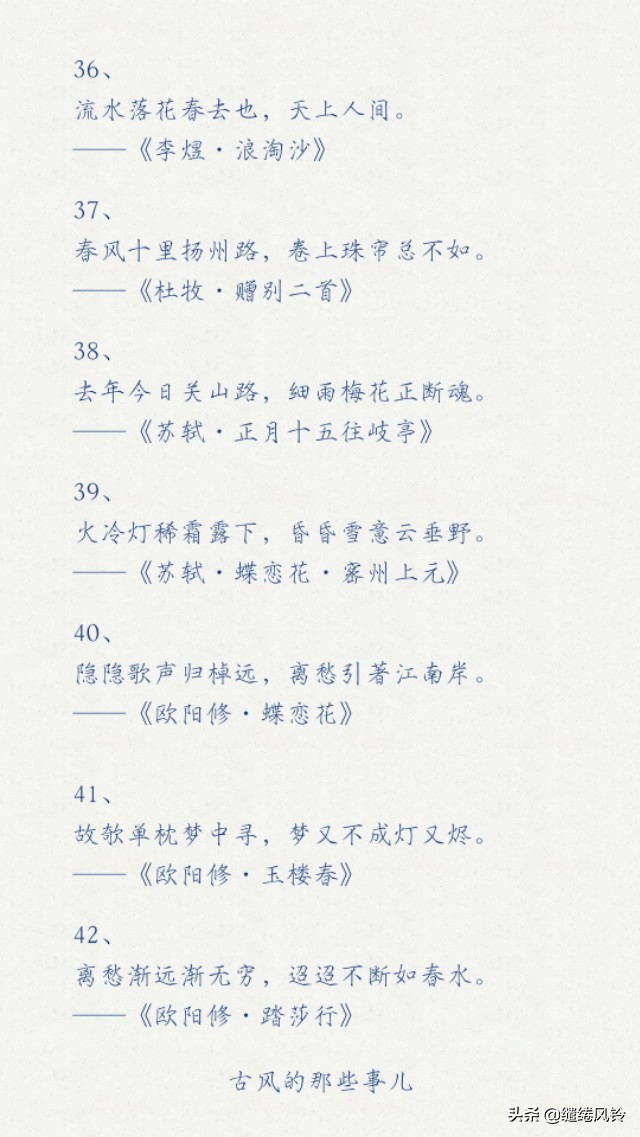 36、
流水落花春去也，天上人间。
——《李煜·浪淘沙》
37、
春风十里扬州路，卷上珠帘总不如。
——《杜牧·赠别二首》
38、
去年今日关山路，细雨梅花正断魂。
——《苏轼·正月十五往岐亭》
39、
火冷灯稀霜露下，昏昏雪意云垂野。
——《苏轼·蝶恋花·密州上元》
40、
隐隐歌声归棹远，离愁引著江南岸。
——《欧阳修·蝶恋花》
41、
故欹单枕梦中寻，梦又不成灯又烬。
——《欧阳修·玉楼春》
42、
离愁渐远渐无穷，迢迢不断如春水。
——《欧阳修·踏莎行》
古风的那些事儿
头杀 @缱绻风铃